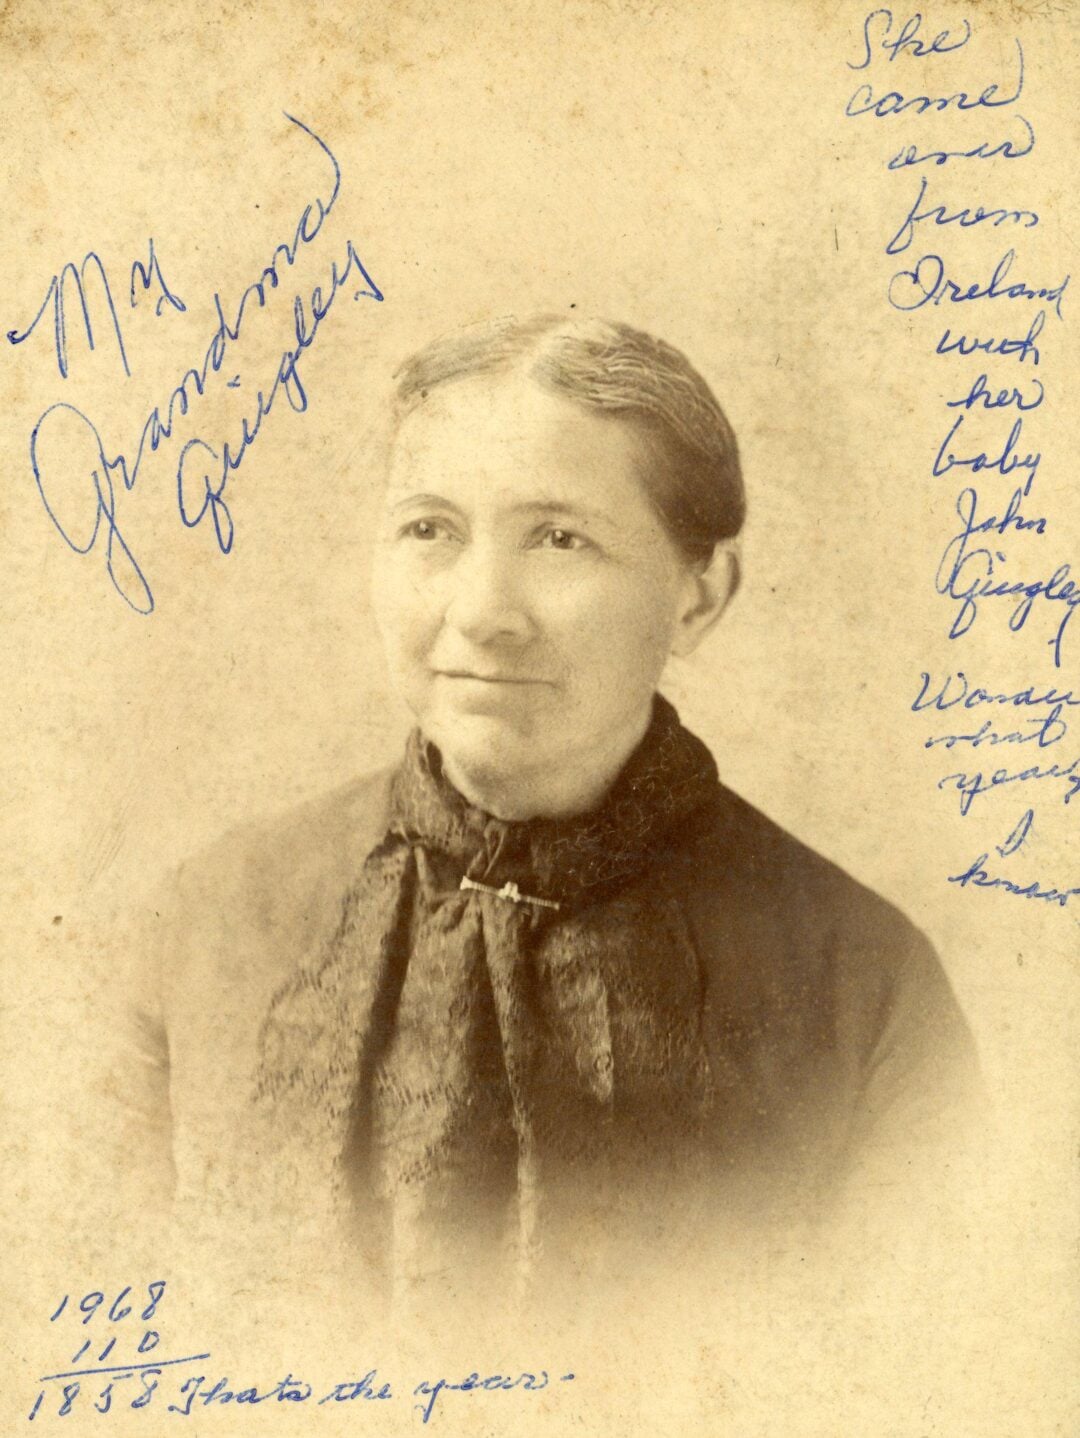 My
Grandma
Quigley
She
came
over
from
Ireland
with
her
baby
John
Quigley
Wonder
what
year,
I
know
1968
110
1858 Thats the year-